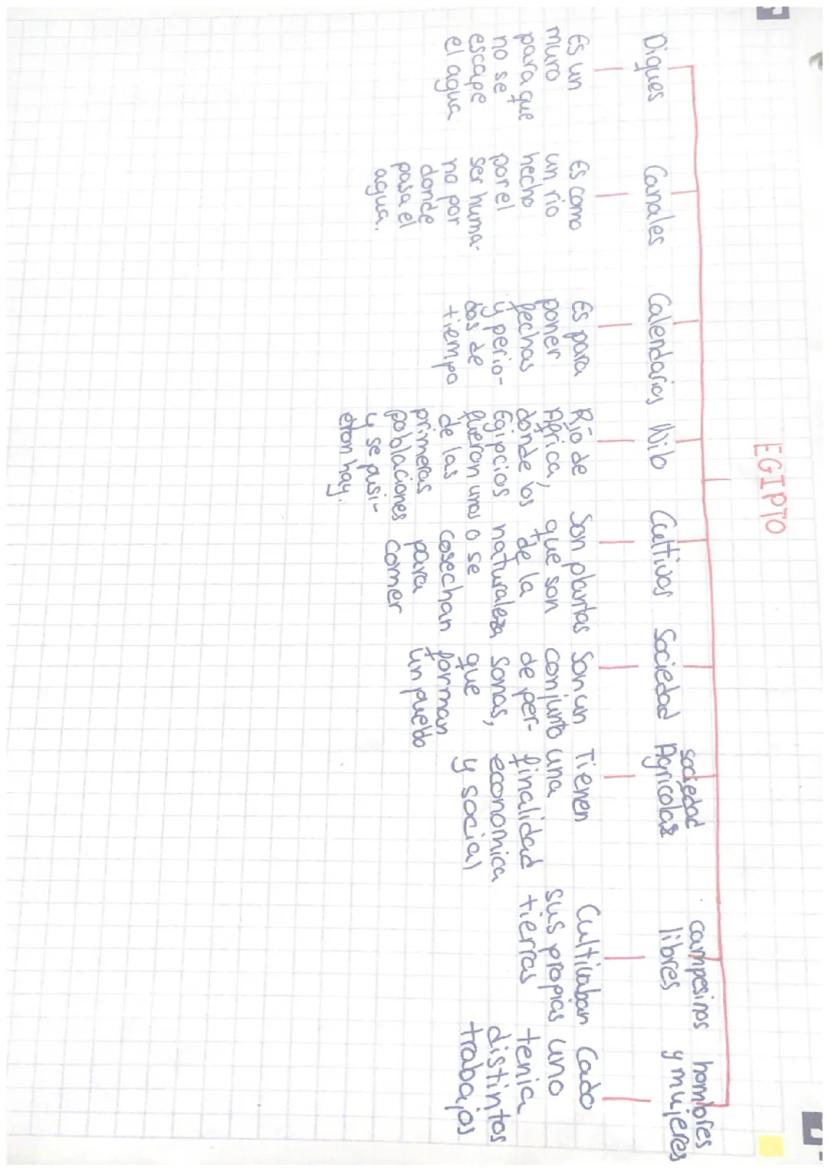 EGIPTO
Diques
Es un
muro
para que
no se
escape
el agua
Canales
Es como
un rio
hecho
por el
ser huma-
no por
donde
pasa el
agua.
Calendarios
Es para
poner
fechas
y perio-
dos de
tiempo
Nilo
Río de
África,
donde los
Egipcios
fueron unos
de las
primeras
poblaciones
y se
hay.
Cultivos
Son plantas
que son
de la
naturaleza
o se
cosechan
para
comer
Sociedad
Son un
conjunto
de per-
sonas,
que
forman
un pueblo
sociedad
Agricolas
Tienen
una
finalidad
economica
y social
campesinos
libres
Cultivaban
sus propias
tierras
hombres
y mujeres
Cado
uno
tenia
distintos
trabajos